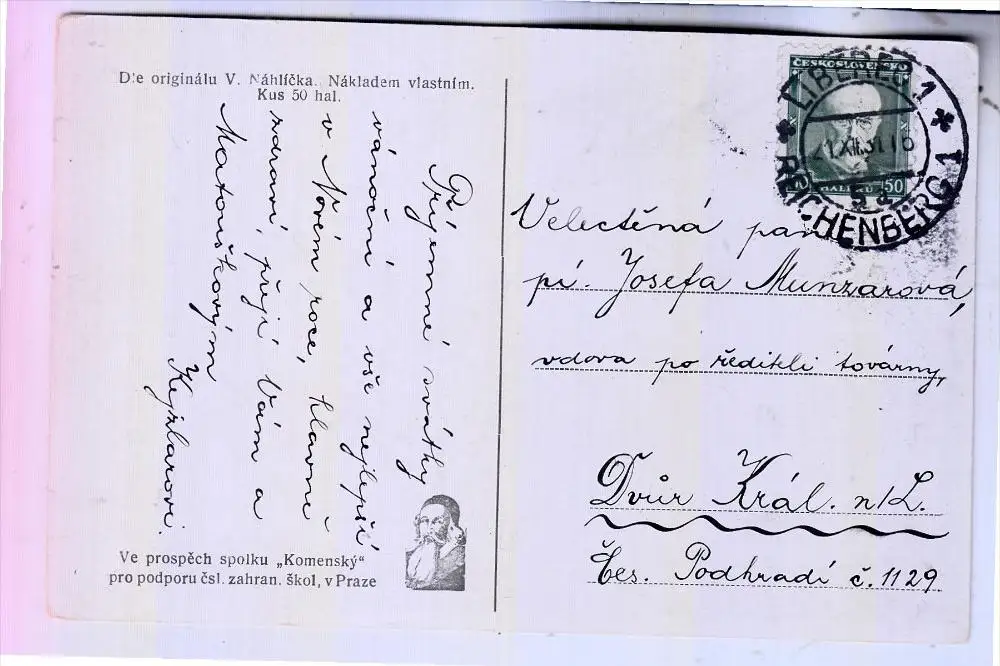 Dle originálu V. Náhlíčka. Nákladem vlastním.
Kus 50 hal.
Příjemné svátky
vánoční a vše nejlepší
v Novém roce, hlavně
zdraví, přejí Vám a
Matouškovým
Kejzlarovi.
Ve prospěch spolku „Komenský"
pro podporu čsl. zahran. škol, v Praze
ČESKOSLOVENSKO
50
LIBEREC 1
21.XII.31.16
5a
REICHENBERG 1
Velectěná
pí. Josefa Munzarová,
vdova po řediteli továrny,
Dvůr Král. n/L.
Čes. Podhradí č. 1129